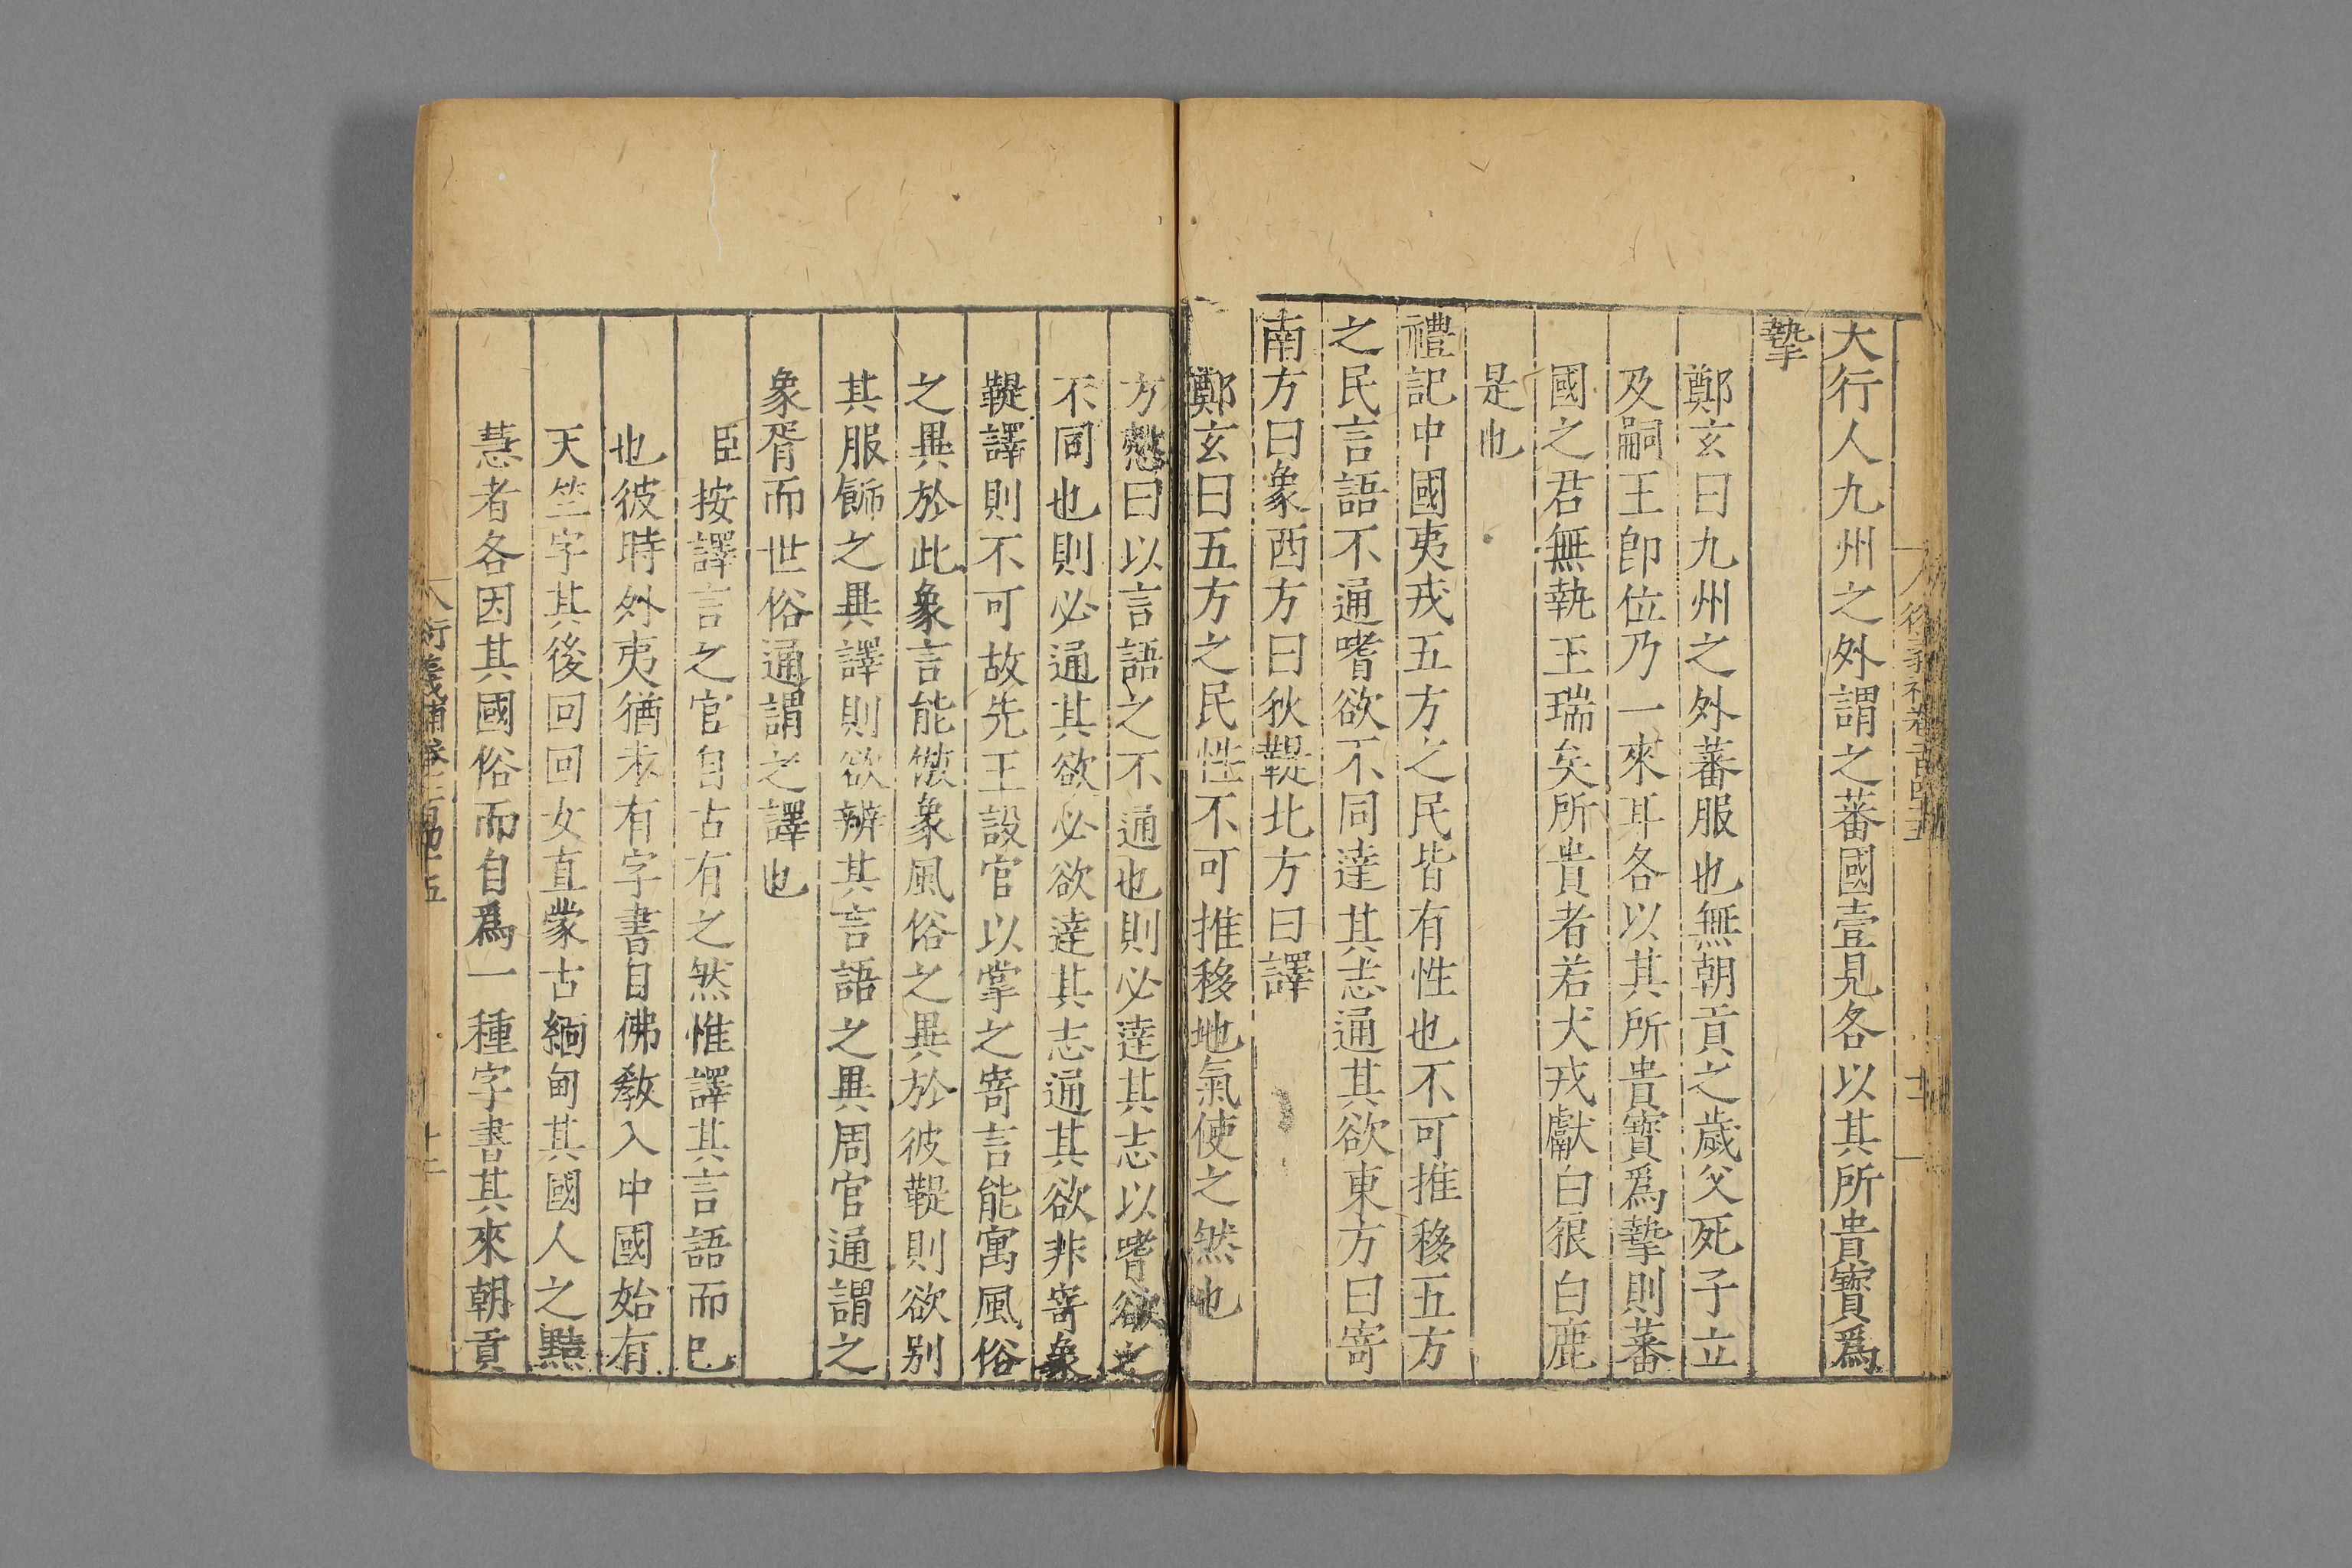 大行人九州之外謂之蕃國壹見各以其所貴寶爲
摯
鄭玄曰九州之外蕃服也無朝貢之歲父死子立
及嗣王卽位乃一來耳各以其所貴寶爲摯則蕃
國之君無執玉瑞矣所貴者若犬戎獻白狼白鹿
是也
禮記中國夷戎五方之民皆有性也不可推移五方
之民言語不通嗜欲不同達其志通其欲東方曰寄
南方曰象西方曰狄鞮北方曰譯
鄭玄曰五方之民性不可推移地氣使之然也
方慤曰以言語之不通也則必達其志以嗜欲之
不同也則必通其欲必欲達其志通其欲非寄象
鞮譯則不可故先王設官以掌之寄言能寓風俗
之異於此象言能倣象風俗之異於彼鞮則欲别
其服飾之異譯則欲辨其言語之異周官通謂之
象胥而世俗通謂之譯也
臣按譯言之官自古有之然惟譯其言語而已
也彼時外夷猶未有字書自佛教入中國始有
天竺字其後回回女直蒙古緬甸其國人之黠
慧者各因其國俗而自爲一種字書其來朝貢
衍義補卷一百四十五
十二